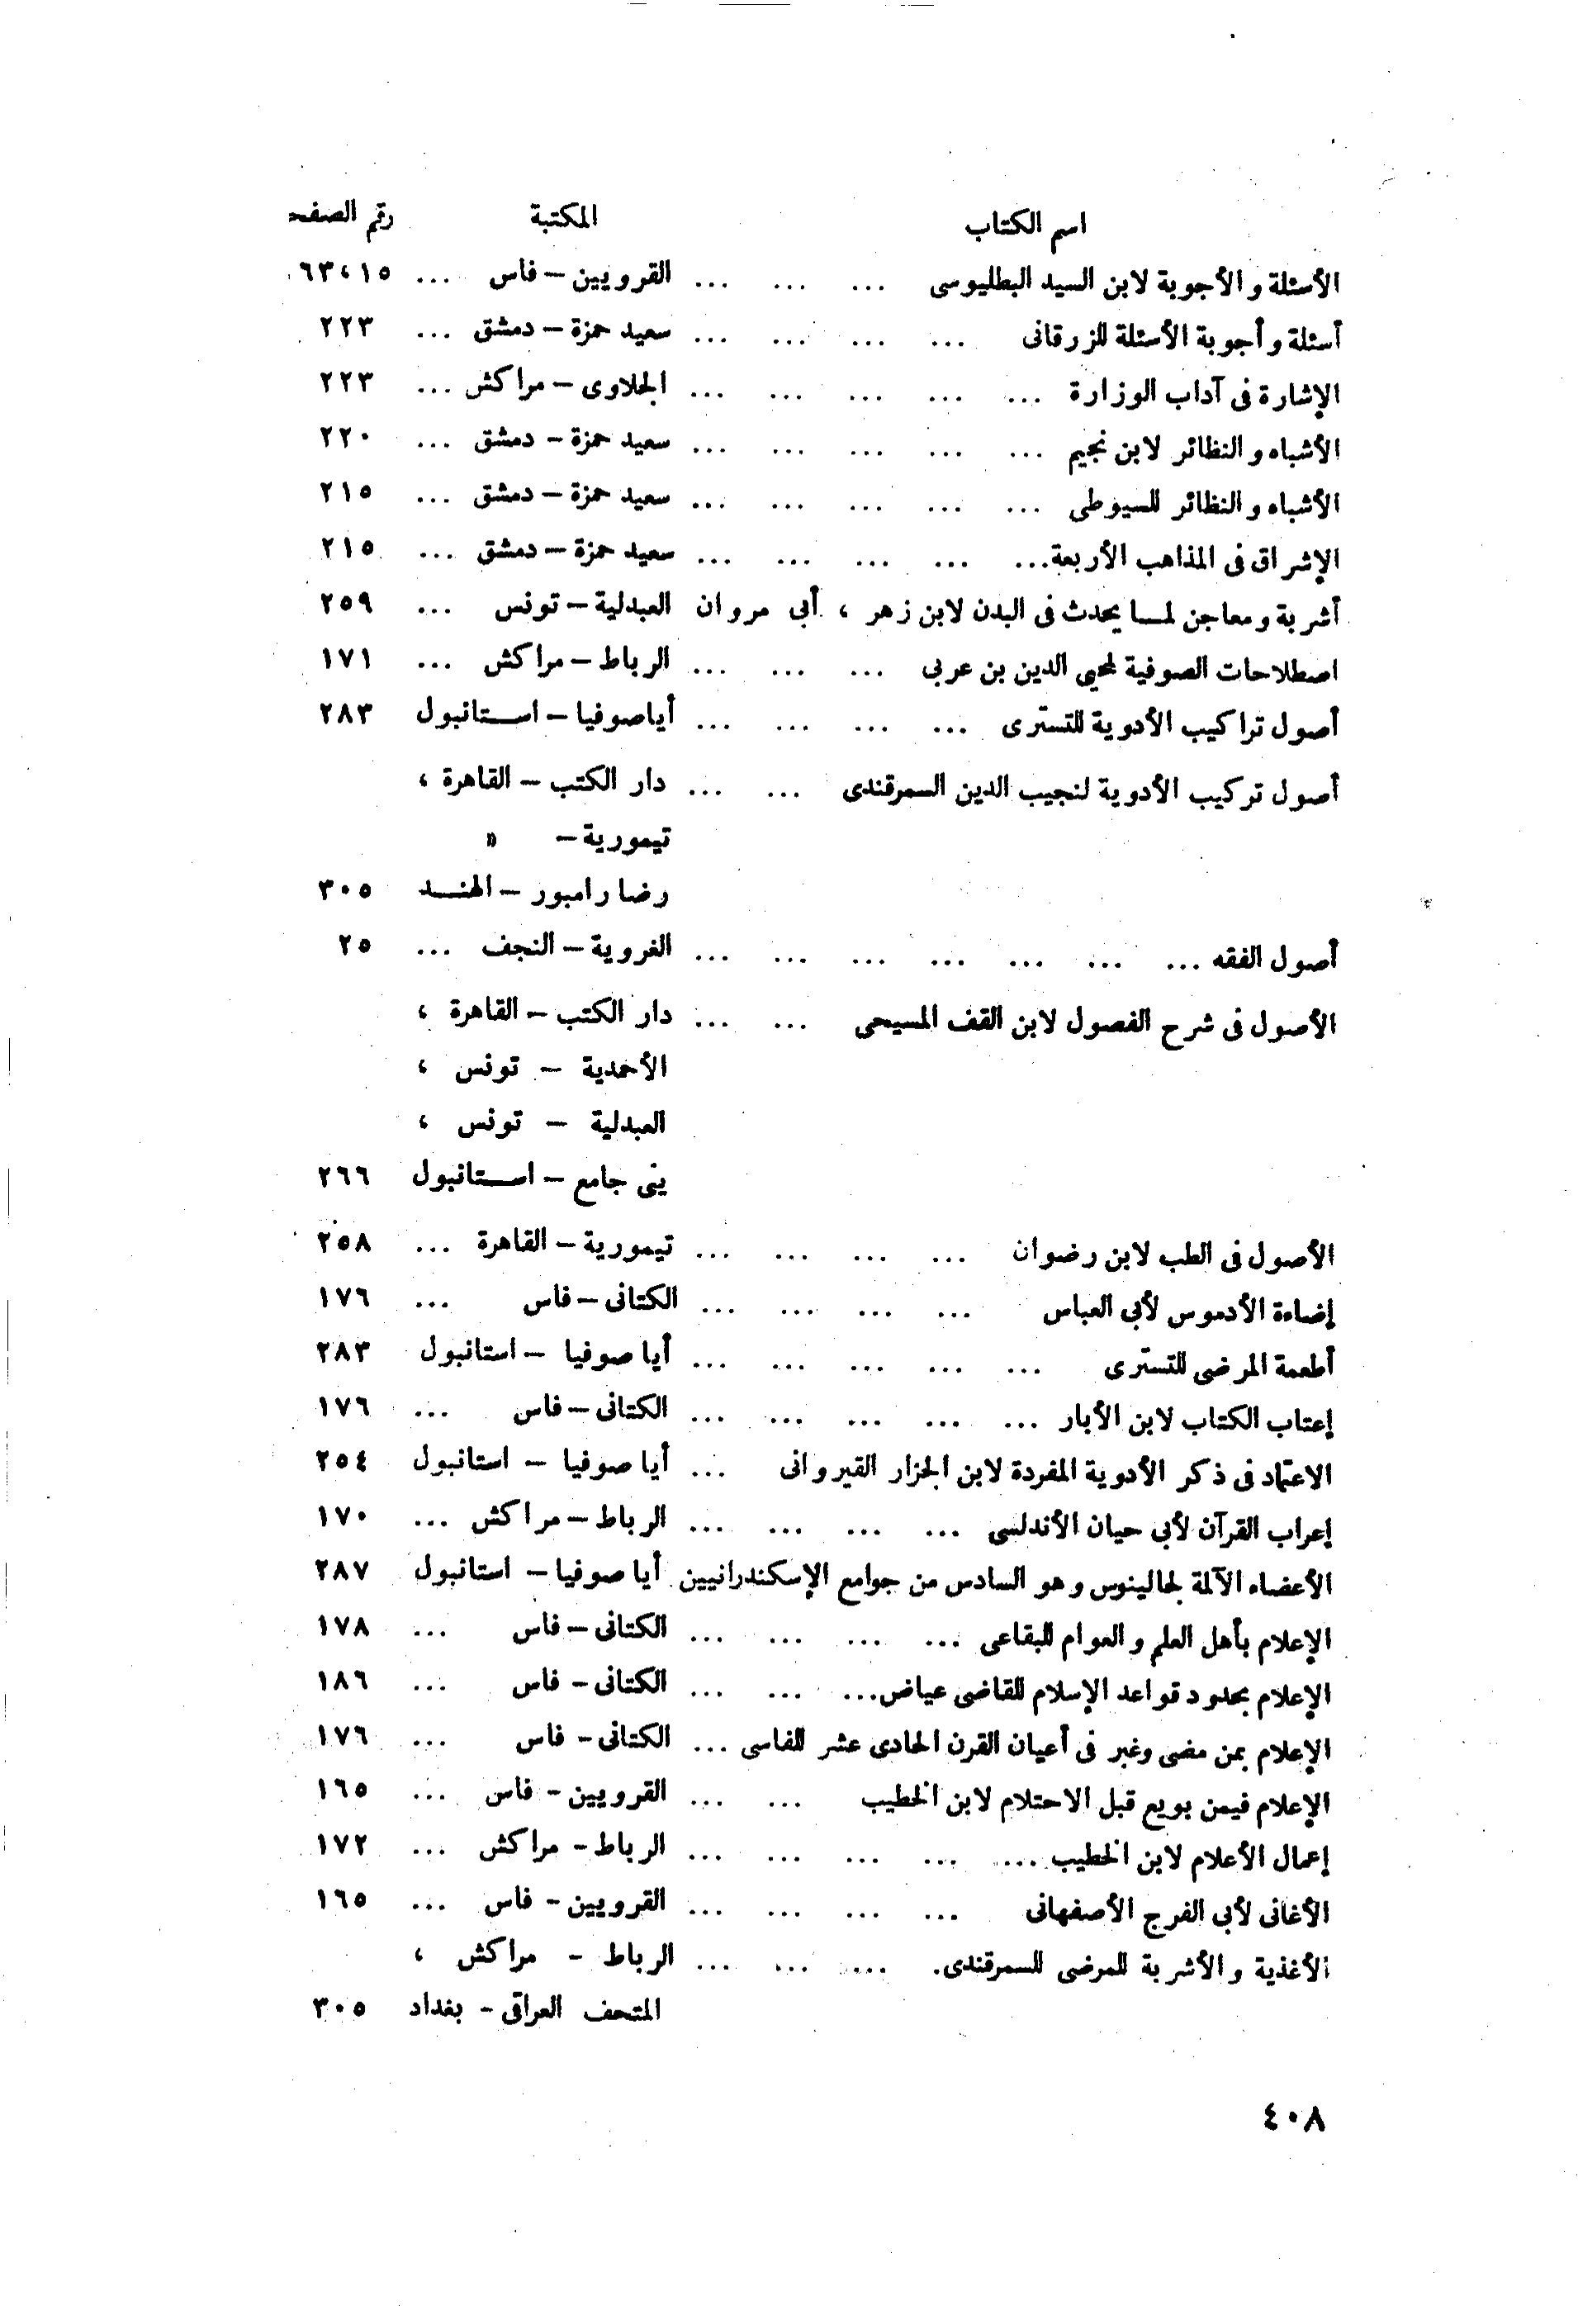 اسم الكتاب المكتبة رقم الصفح
الأسئلة والأجوبة لابن السيد البطليوسى ... ... ... القرويين – فاس ... ١٥ ، ٦٣
أسئلة وأجوبة الأسئلة للزرقانى ... ... ... ... سعيد حمزة – دمشق ... ٢٢٣
الإشارة فى آداب الوزارة ... ... ... ... ... الجلاوى – مراكش ... ٢٢٣
الأشباه والنظائر لابن نجيم ... ... ... ... ... سعيد حمزة – دمشق ... ٢٢٠
الأشباه والنظائر للسيوطى ... ... ... ... ... سعيد حمزة – دمشق ... ٢١٥
الإشراق فى المذاهب الأربعة ... ... ... ... ... سعيد حمزة – دمشق ... ٢١٥
أشربة ومعاجن لمـا يحدث فى البدن لابن زهر ، أبى مروان العبدلية – تونس ... ٢٥٩
اصطلاحات الصوفية لمحيى الدين بن عربى ... ... ... الرباط – مراكش ... ١٧١
أصول تراكيب الأدوية للتسترى ... ... ... ... أياصوفيا – استانبول ٢٨٣
أصول تركيب الأدوية لنجيب الدين السمرقندى ... ... دار الكتب – القاهرة ،
تيمورية – »
رضا رامبور – الهنـد ٣٠٥
أصول الفقه ... ... ... ... ... ... ... الغروية – النجف ... ٢٥
الأصول فى شرح الفصول لابن القف المسيحى ... ... دار الكتب – القاهرة ،
الأحمدية – تونس ،
العبدلية – تونس ،
ينى جامع – استانبول ٢٦٦
الأصول فى الطب لابن رضوان ... ... ... ... تيمورية – القاهرة ... ٢٥٨
إضاءة الأدموس لأبى العباس ... ... ... ... الكتانى – فاس ... ١٧٦
أطعمة المرضى للتسترى ... ... ... ... ... أيا صوفيا – استانبول ٢٨٣
إعتاب الكتاب لابن الأبار ... ... ... ... ... الكتانى – فاس ... ١٧٦
الاعتماد فى ذكر الأدوية المفردة لابن الجزار القيروانى ... أيا صوفيا – استانبول ٢٥٤
إعراب القرآن لأبى حيان الأندلسى ... ... ... ... الرباط – مراكش ... ١٧٠
الأعضاء الآلمة لجالينوس وهو السادس من جوامع الإسكندرانيين أيا صوفيا – استانبول ٢٨٧
الإعلام بأهل العلم والعوام للبقاعى ... ... ... ... الكتانى – فاس ... ١٧٨
الإعلام بحدود قواعد الإسلام للقاضى عياض ... ... ... الكتانى – فاس ... ١٨٦
الإعلام بمن مضى وغبر فى أعيان القرن الحادى عشر للفاسى ... الكتانى – فاس ... ١٧٦
الإعلام فيمن بويع قبل الاحتلام لابن الخطيب ... ... القرويين – فاس ... ١٦٥
إعمال الأعلام لابن الخطيب ... ... ... ... ... الرباط – مراكش ... ١٧٢
الأغانى لأبى الفرج الأصفهانى ... ... ... ... القرويين – فاس ... ١٦٥
الأغذية والأشربة للمرضى للسمرقندى. ... ... ... الرباط – مراكش ،
المتحف العراقى – بغداد ٣٠٥
٤٠٨